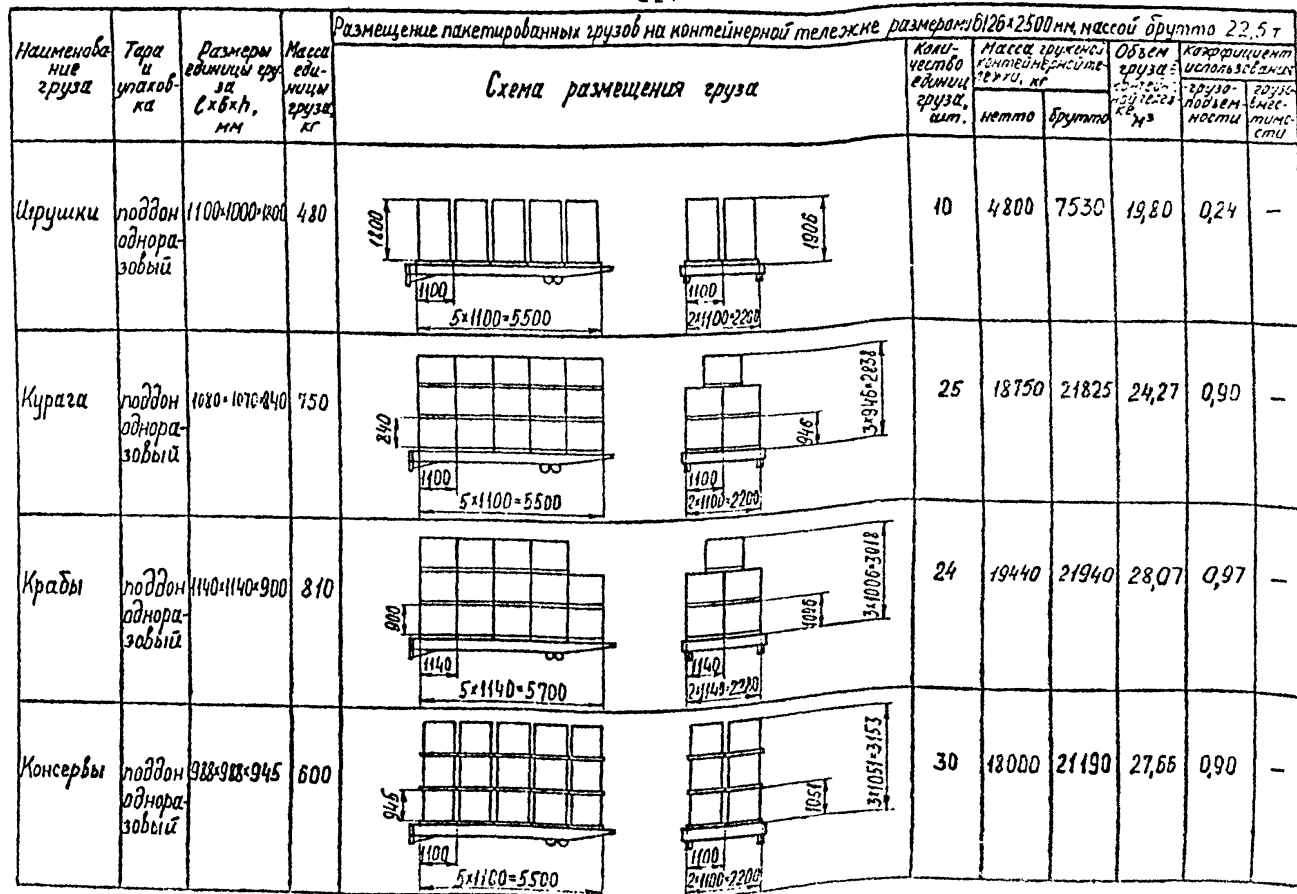 Размещение пакетированных грузов на контейнерной тележке размером 6126×2500 мм, массой брутто 22,5 т
Наименование груза
Тара и упаковка
Размеры единицы груза l×b×h, мм
Масса единицы груза, кг
Схема размещения груза
Количество единиц груза, шт.
Масса груженой контейнерной тележки, кг
нетто
брутто
Объем груза м³
Коэффициент использования
грузоподъемности
грузовместимости
Игрушки
поддон одноразовый
1100×1000×1800
480
1800
1906
1100
5×1100=5500
1100
2×1100=2200
10
4800
7530
19,80
0,24
—
Курага
поддон одноразовый
1080×1070×840
750
840
946
3×946=2838
1100
5×1100=5500
1100
2×1100=2200
25
18750
21825
24,27
0,90
—
Крабы
поддон одноразовый
1140×1140×900
810
900
3×1006=3018
1140
5×1140=5700
1140
24
19440
21940
28,07
0,97
—
Консервы
поддон одноразовый
988×988×945
600
945
1051
3×1051=3153
1100
5×1100=5500
1100
2×1100=2200
30
18000
21190
27,66
0,90
—